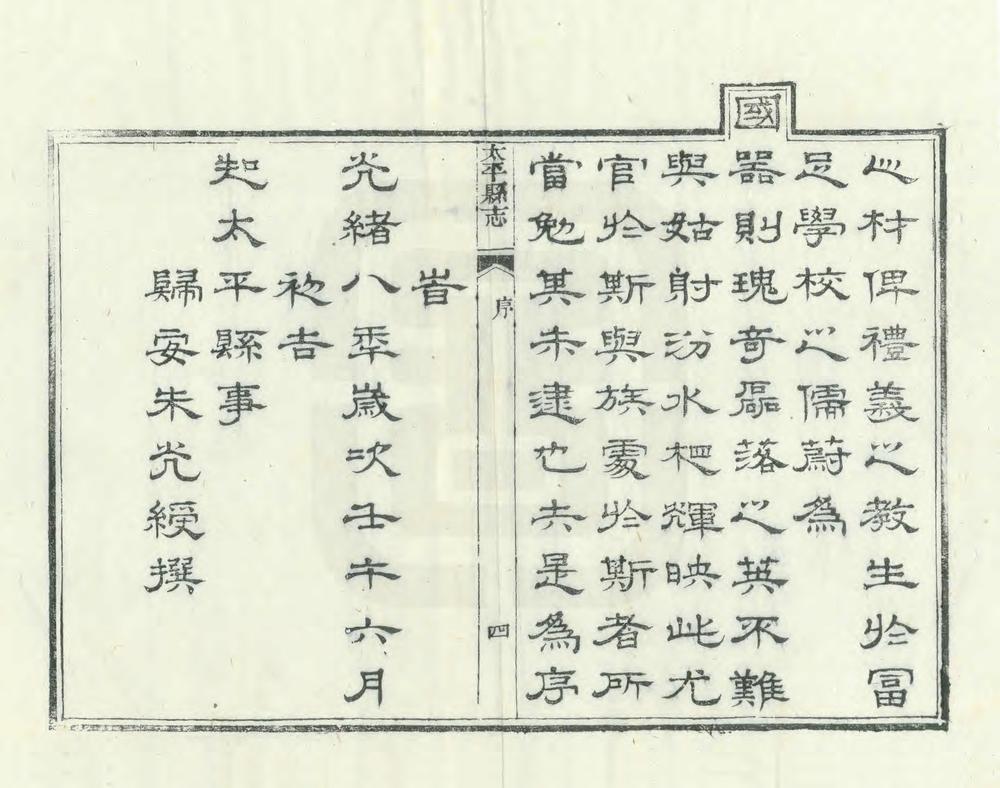 之材俾禮義之教生於冨
足學校之儒蔚爲
國器則瑰奇磊落之英不難
與姑射汾水相輝映此尤
官於斯與族處於斯者所
當勉其未逮也夫是爲序
太平縣志 序 四
旹
光緒八秊歲次壬午六月
初吉
知太平縣事
歸安朱光綬撰